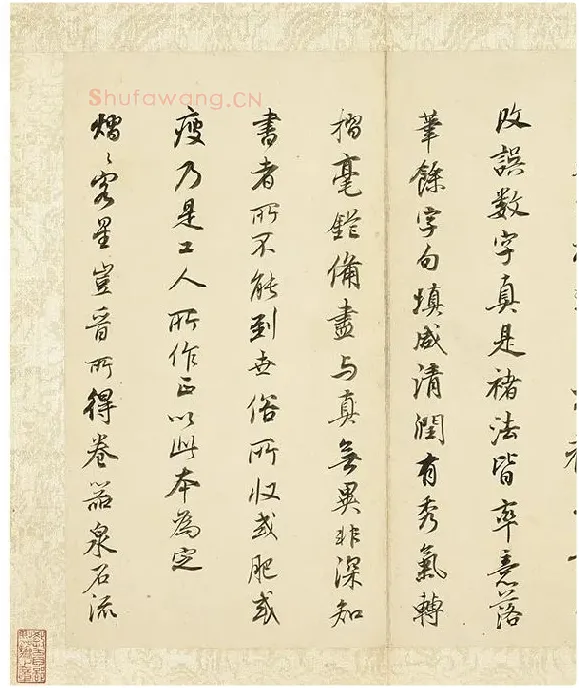 Shufawang.CN
改誤数字真是褚法皆率意落
筆餘字勾填咸清潤有秀氣轉
摺毫鋩備盡与真無異非深知
書者所不能到世俗所收或肥或
瘦乃是工人所作正以此本為定
熠々客星豈晉所得卷器泉石流